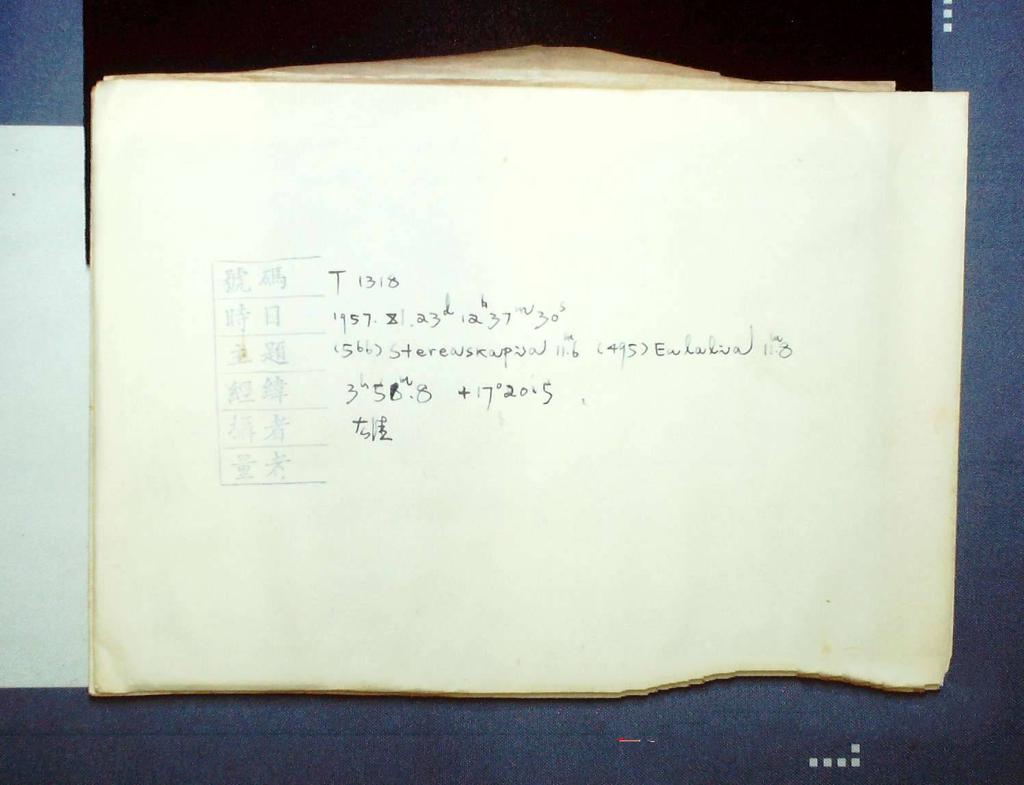 號碼 T 1318
時日 1957. XI. 23ᵈ 12ʰ 37ᵐ 30ˢ
主題 (566) Stereoskopia 11ᵐ.6 (495) Eulalia 11ᵐ.8
經緯 3ʰ 58ᵐ.8 +17°20.5
攝者
量者